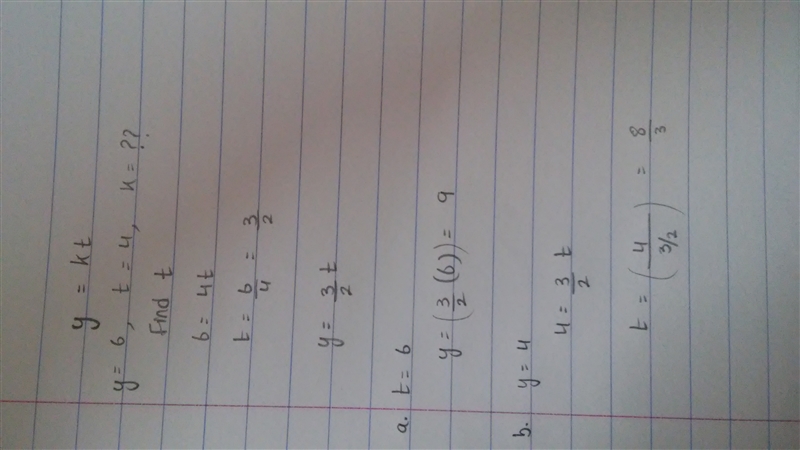 y = kt
y = 6, t = 4, k = ??
Find t
6 = 4t
t = 6/4 = 3/2
y = 3/2 t
a. t = 6
y = (3/2 (6)) = 9
b. y = 4
4 = 3/2 t
t = (4/(3/2)) = 8/3